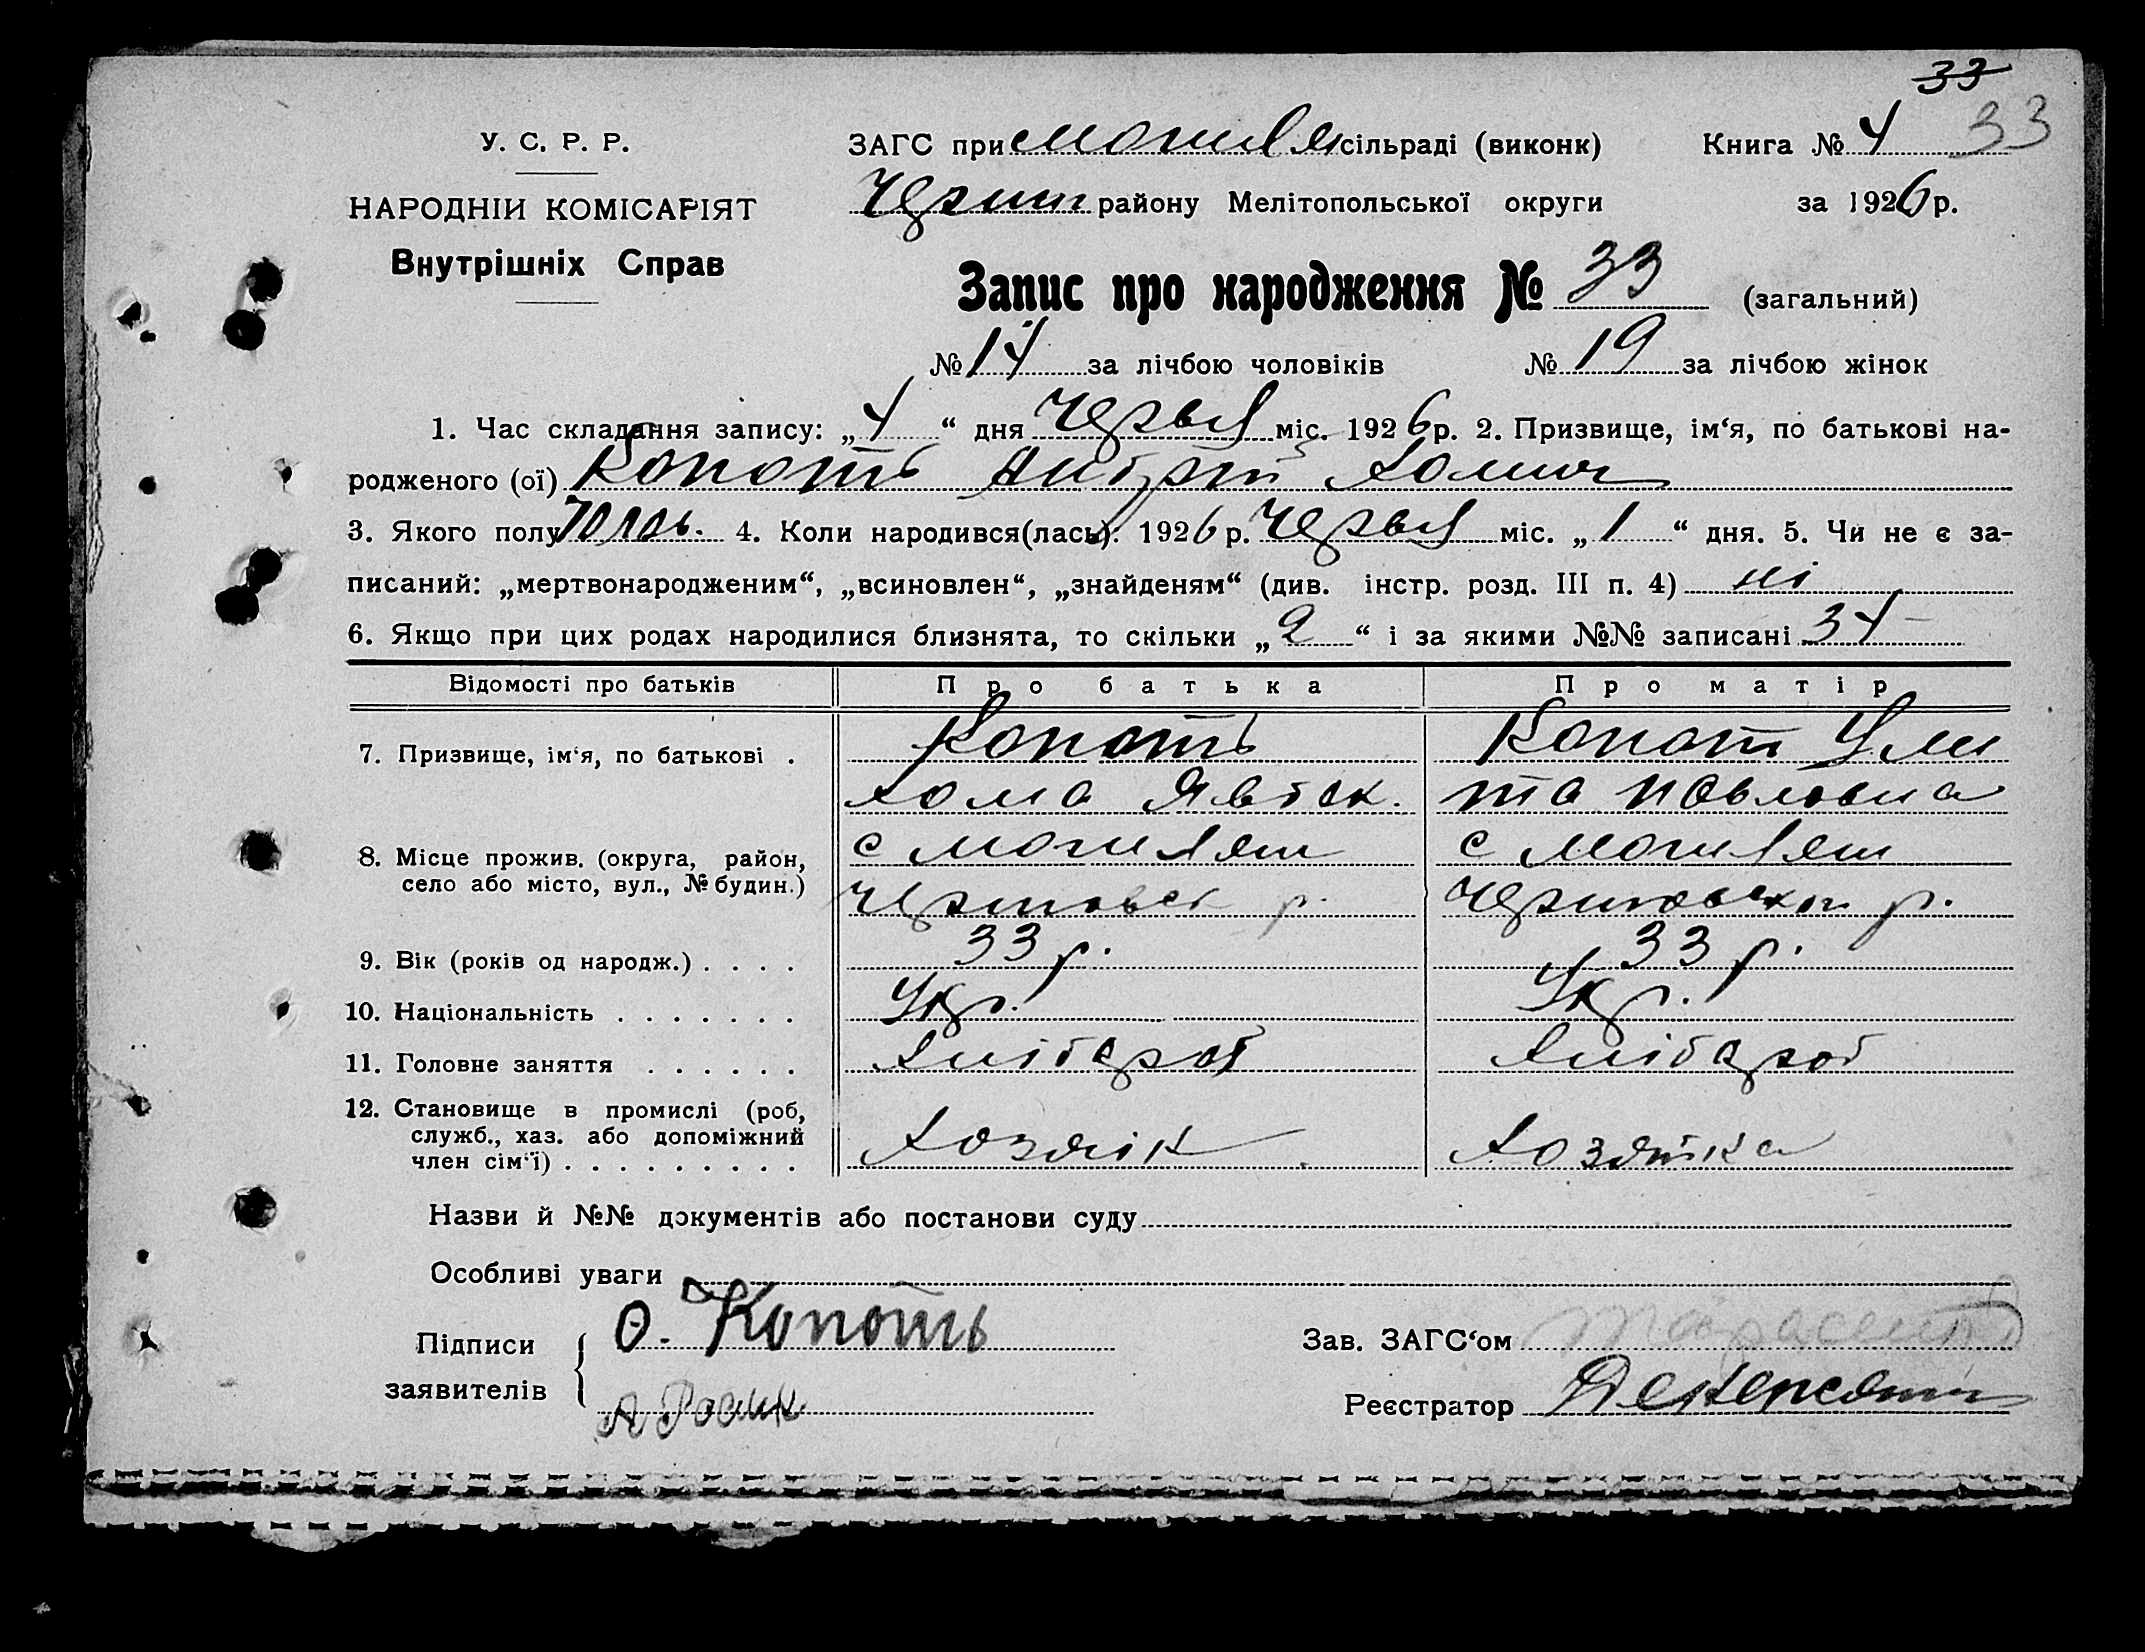 33
33
У. С. Р. Р.
НАРОДНІЙ КОМІСАРІЯТ
Внутрішніх Справ
ЗАГС при Могиля сільраді (виконк) Книга № 4
району Мелітопольської округи за 1926 р.
Запис про народження № 33 (загальний)
№ 14 за лічбою чоловіків № 19 за лічбою жінок
1. Час складання запису: „4“ дня Червня міс. 1926 р. 2. Призвище, ім‘я, по батькові на-
родженого (ої) Копоть Хомич
3. Якого полу 4. Коли народився(лась): 1926 р. Червня міс. „1“ дня. 5. Чи не є за-
писаний: „мертвонародженим“, „всиновлен“, „знайденям“ (див. інстр. розд. III п. 4) ні
6. Якщо при цих родах народилися близнята, то скільки „2“ і за якими №№ записані 34
Відомості про батьків Про батька Про матір
7. Призвище, ім‘я, по батькові . Копоть Копот Ули
Хома Явдок. та Павловна
8. Місце прожив. (округа, район, с Могиляни с Могиляни
село або місто, вул., № будин.) р. р.
9. Вік (років од народж.) . . . . 33 р. 33 р.
10. Національність . . . . . . . Укр. Укр.
11. Головне заняття . . . . . . Хлібороб Хлібороб
12. Становище в промислі (роб,
служб., хаз. або допоміжний Хозяїн Хозяйка
член сім‘ї) . . . . . . . . .
Назви й №№ документів або постанови суду
Особливі уваги
Підписи О. Копоть Зав. ЗАГС‘ом
заявителів Реєстратор